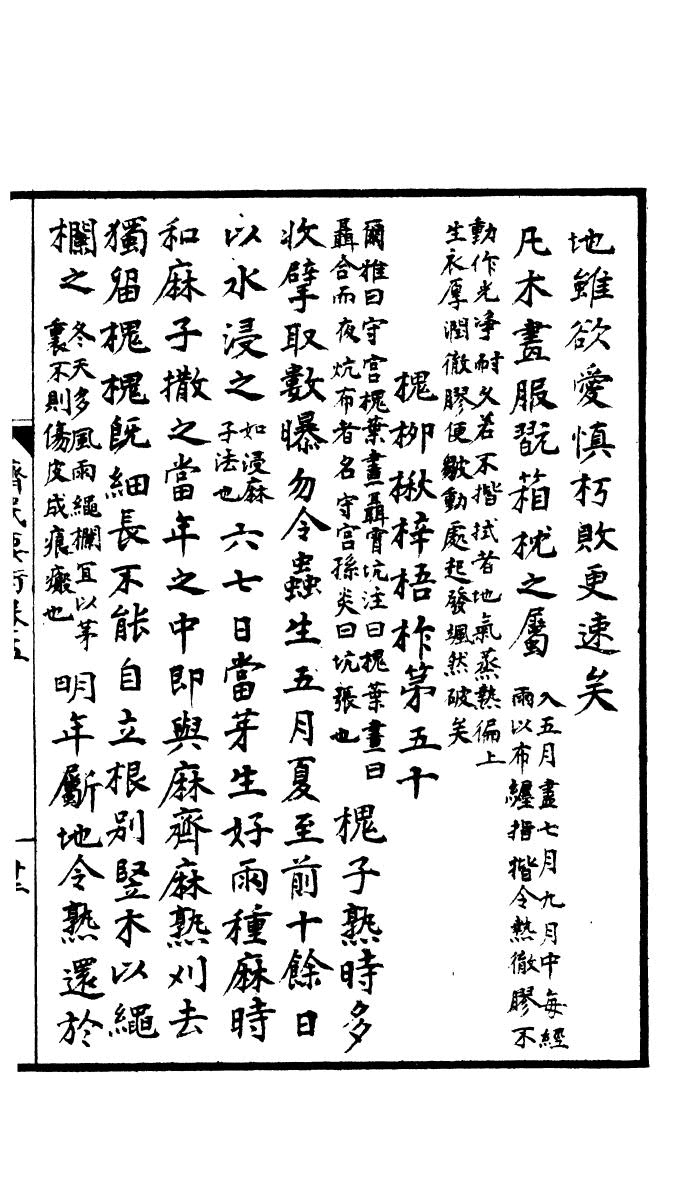 地雖欲愛慎朽敗更速矣
凡木畫服翫箱枕之屬
入五月盡七月九月中每經
雨以布纏指揩令熱徹膠不
動作光淨耐久若不揩拭者地氣蒸熱徧上
生衣厚潤徹膠便皺動處起發颯然破矣
槐柳楸梓梧柞第五十
爾雅曰守宫槐葉晝聶宵炕注曰槐葉晝日
聶合而夜炕布者名守宫孫炎曰炕張也
槐子熟時多
收擘取數曝勿令蟲生五月夏至前十餘日
以水浸之
如浸麻
子法也
六七日當芽生好雨種麻時
和麻子撒之當年之中即與麻齊麻熟刈去
獨留槐槐既細長不能自立根别竪木以繩
欄之
冬天多風雨繩欄宜以茅
裹不則傷皮成痕瘢也
明年斸地令熟還於
齊民要術卷五
十三